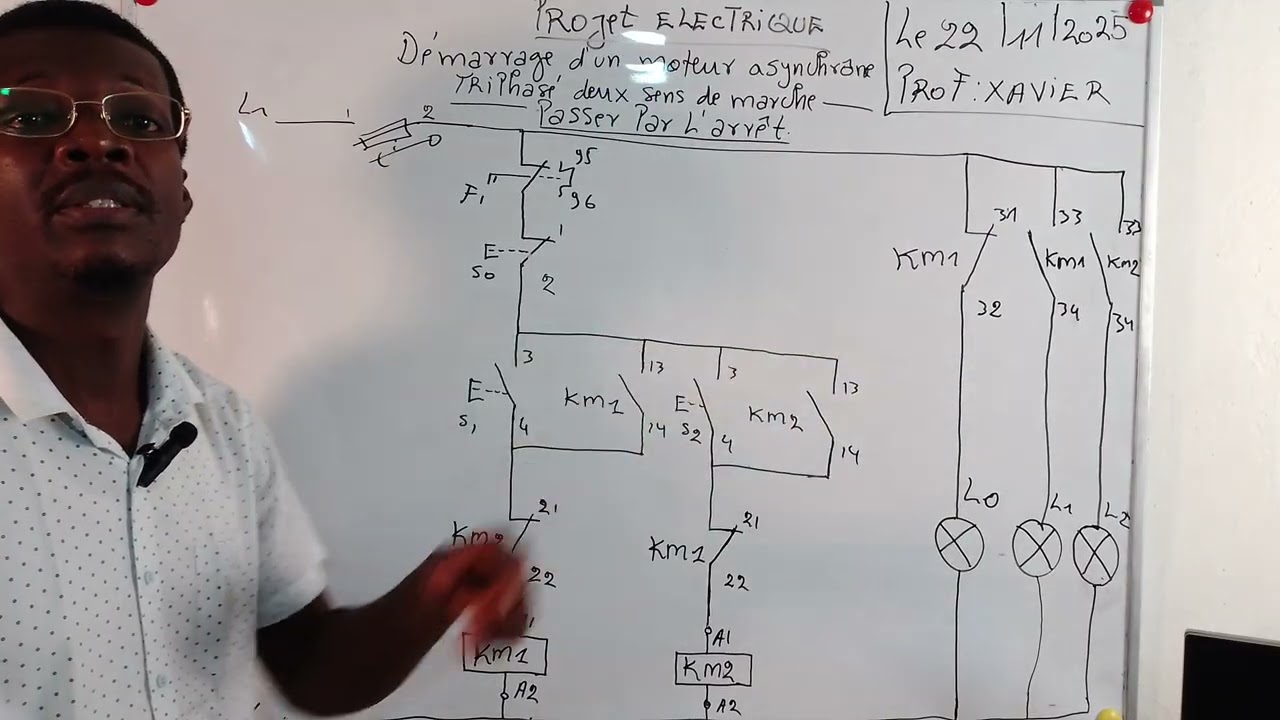 PROJET ELECTRIQUE
Démarrage d'un moteur asynchrone
TRIPhasé deux sens de marche
Passer Par L'arrêt.
Le 22 /11/2025
PROF: XAVIER
1 2
95
F1
96
1
E
S0
2
3 13 3 13
E KM1 E KM2
S1 S2
4 14 4 14
21 21
KM2 KM1
22 22
A1
KM1 KM2
A2 A2
31 33 33
KM1 KM1 KM2
32 34 34
L0 L1 L2